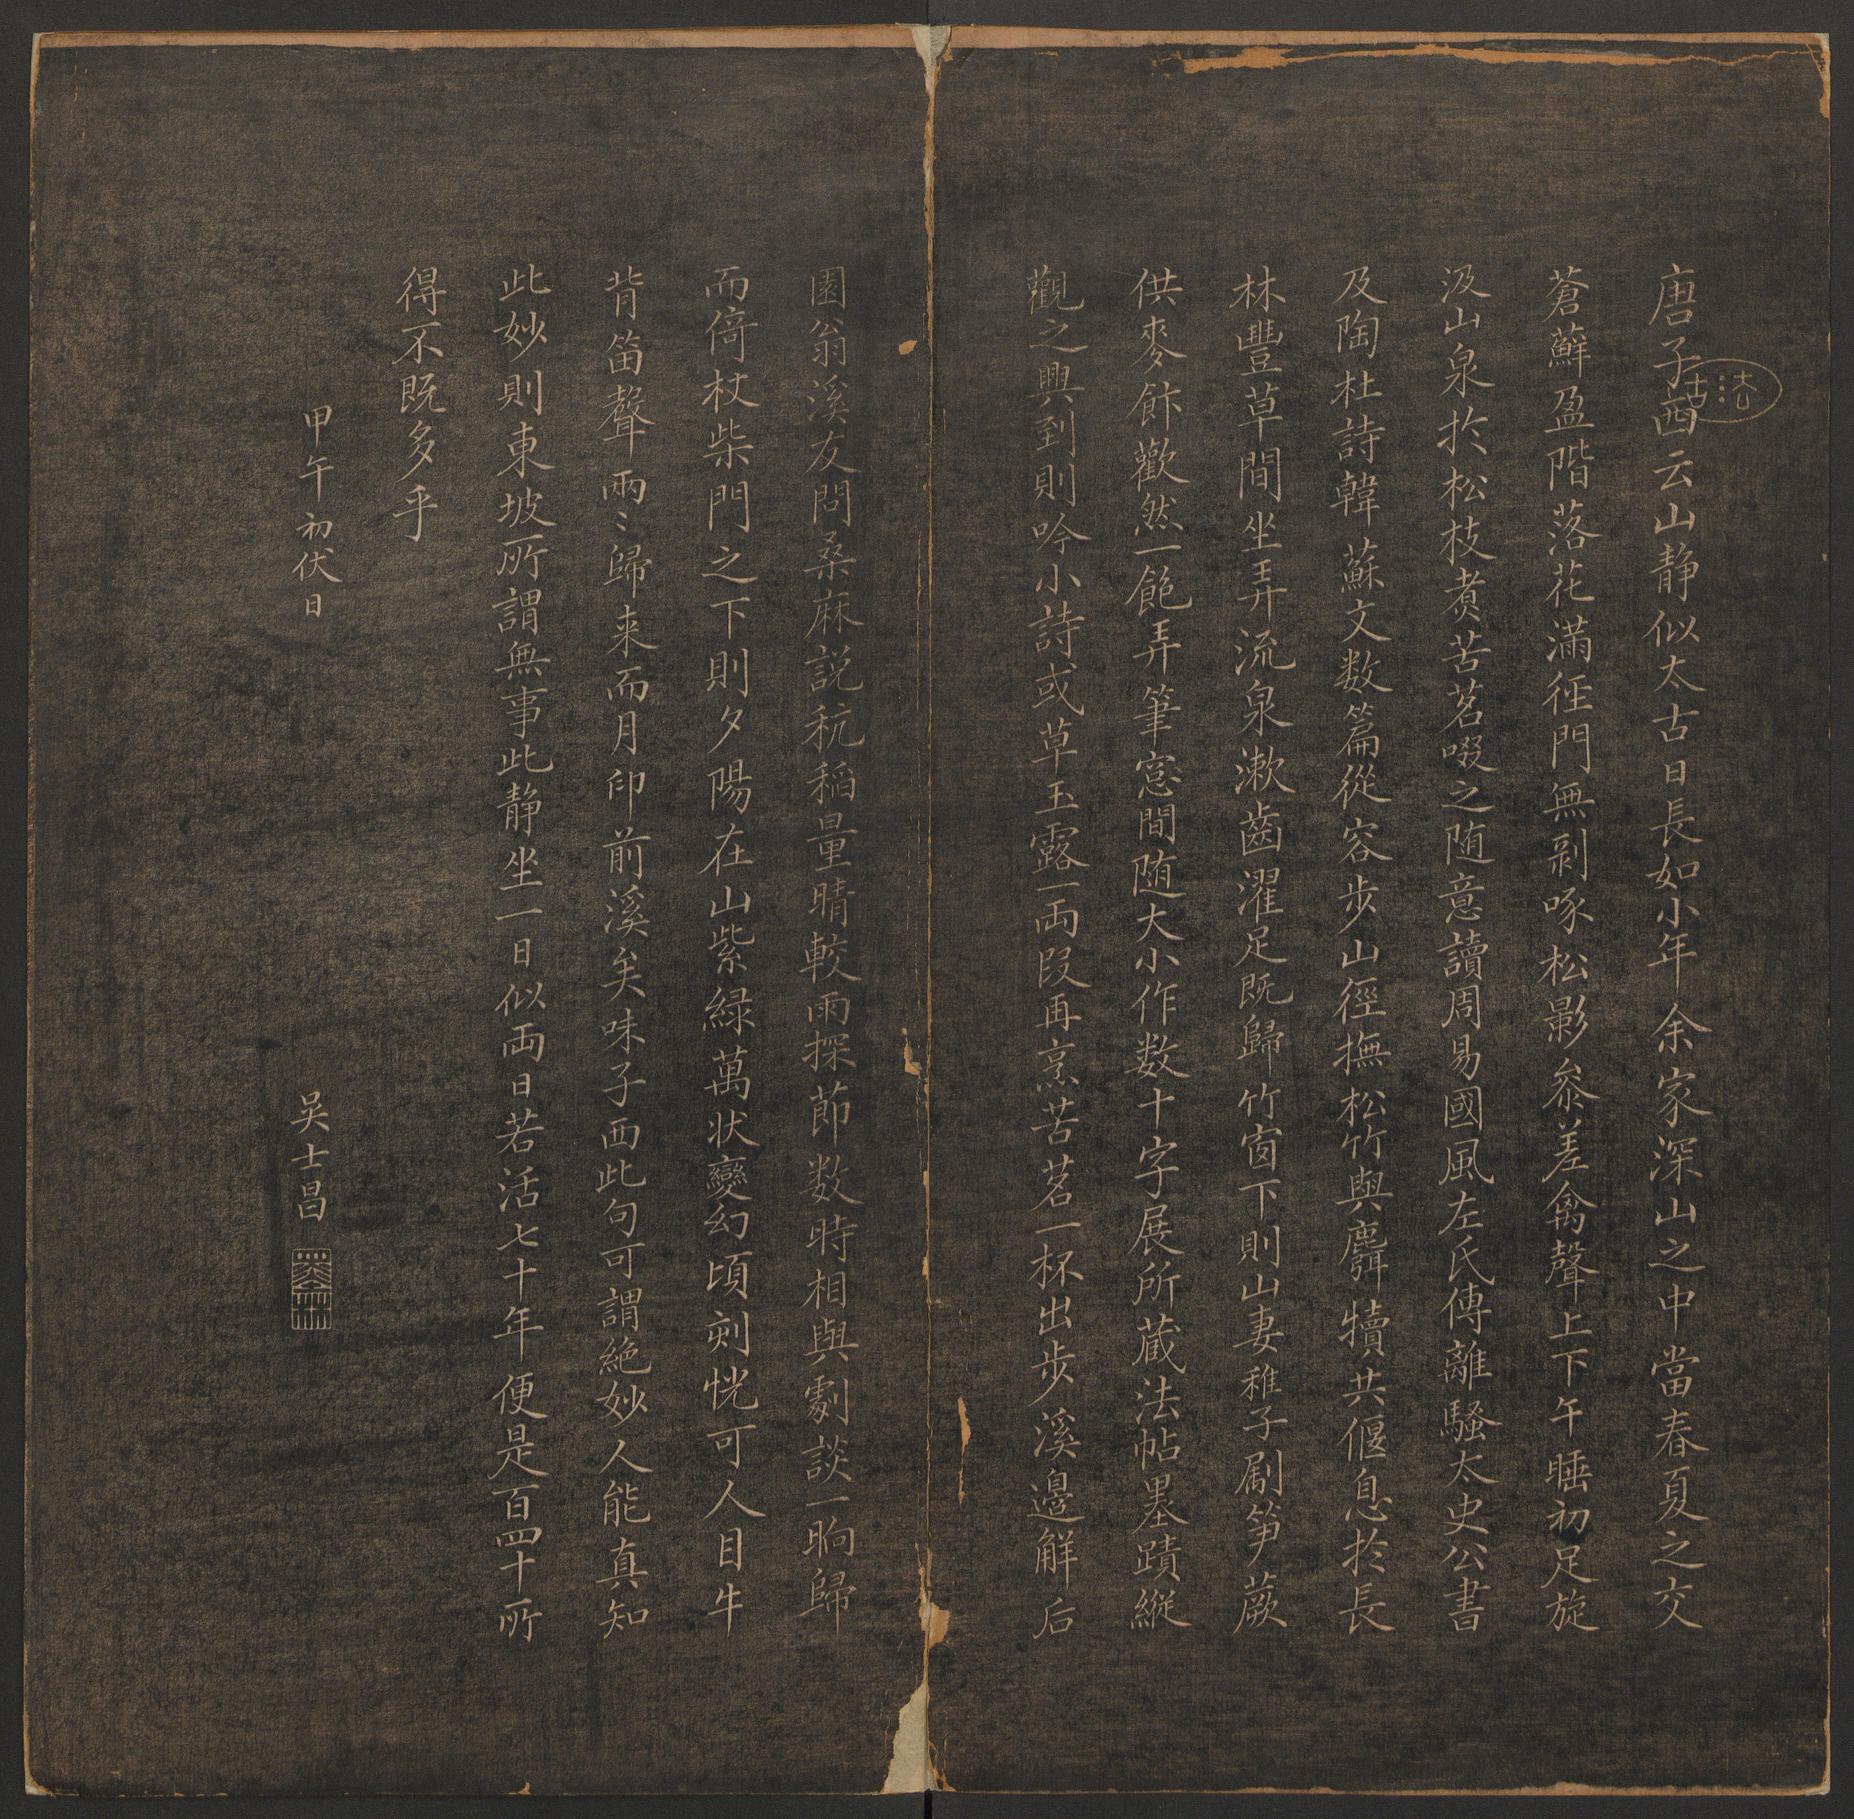 唐子西云山静似太古日長如小年余家深山之中當春夏之交
蒼蘚盈階落花滿徑門無剥啄松影叅差禽聲上下午睡初足旋
汲山泉於松枝煑苦茗啜之随意讀周易國風左氏傳離騷太史公書
及陶杜詩韓蘇文数篇從容步山徑撫松竹與麛犢共偃息於長
林豐草間坐弄流泉漱齒濯足既歸竹窗下則山妻稚子刷笋蕨
供麥飰歡然一飽弄筆窓間随大小作数十字展所蔵法帖墨蹟縱
觀之興到則吟小詩或草玉露一兩段再烹苦茗一杯出步溪邊觧后
園翁溪友問桑麻説秔稻量晴較雨探莭数時相與劇談一晌歸
而倚杖柴門之下則夕陽在山紫緑萬状變幻頃刻恍可人目牛
背笛聲兩〻歸来而月印前溪矣味子西此句可謂絶妙人能真知
此妙則東坡所謂無事此静坐一日似兩日若活七十年便是百四十所
得不既多乎
甲午初伏日
吴士昌